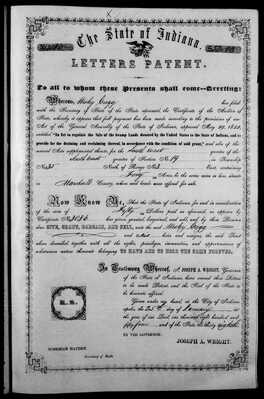 The State of Indiana.
LETTERS PATENT.
To all to whom these Presents shall come—Greeting:
Whereas, Moby has filed
with the Secretary of State of this State aforesaid, the Certificate of the Auditor of
State, whereby it appears that full payment has been made according to the provisions of an
Act of the General Assembly of the State of Indiana, approved May 29, 1852,
entitled "An Act to regulate the Sale of the Swamp Lands donated by the United States to the State of Indiana, and to
provide for the draining and reclaiming thereof, in accordance with the condition of said grant," and also of the
several Acts supplemental thereto, for the South west quarter of the
South east quarter of Section No. 19 in Township
No. North of Range No. East containing
Forty Acres to the same more or less situate
in Marshall County, when said lands were offered for sale.
Now Know Ye, That the State of Indiana, for and in consideration
of the sum of Fifty Dollars paid as aforesaid as appears by
Certificate No. has given, granted, bargained, and sold, and by these Presents
does GIVE, GRANT, BARGAIN, AND SELL, unto the said Moby
and heirs and assigns, the said Tract
above described, together with all the rights, privileges, immunities, and appurtenances of
whatsoever nature thereunto belonging TO HAVE AND TO HOLD THE SAME FOREVER.
In Testimony Whereof, I, JOSEPH A. WRIGHT, Governor
of the State of Indiana, have caused these Letters
to be made Patent, and the Seal of the State to
be hereunto affixed.
Given under my hand, at the City of Indiana-
polis, the day of January in
the year of our Lord one thousand eight hundred and
fifty four and of the State the thirty eighth
BY THE GOVERNOR,
JOSEPH A. WRIGHT.
NEHEMIAH HAYDEN,
Secretary of State.